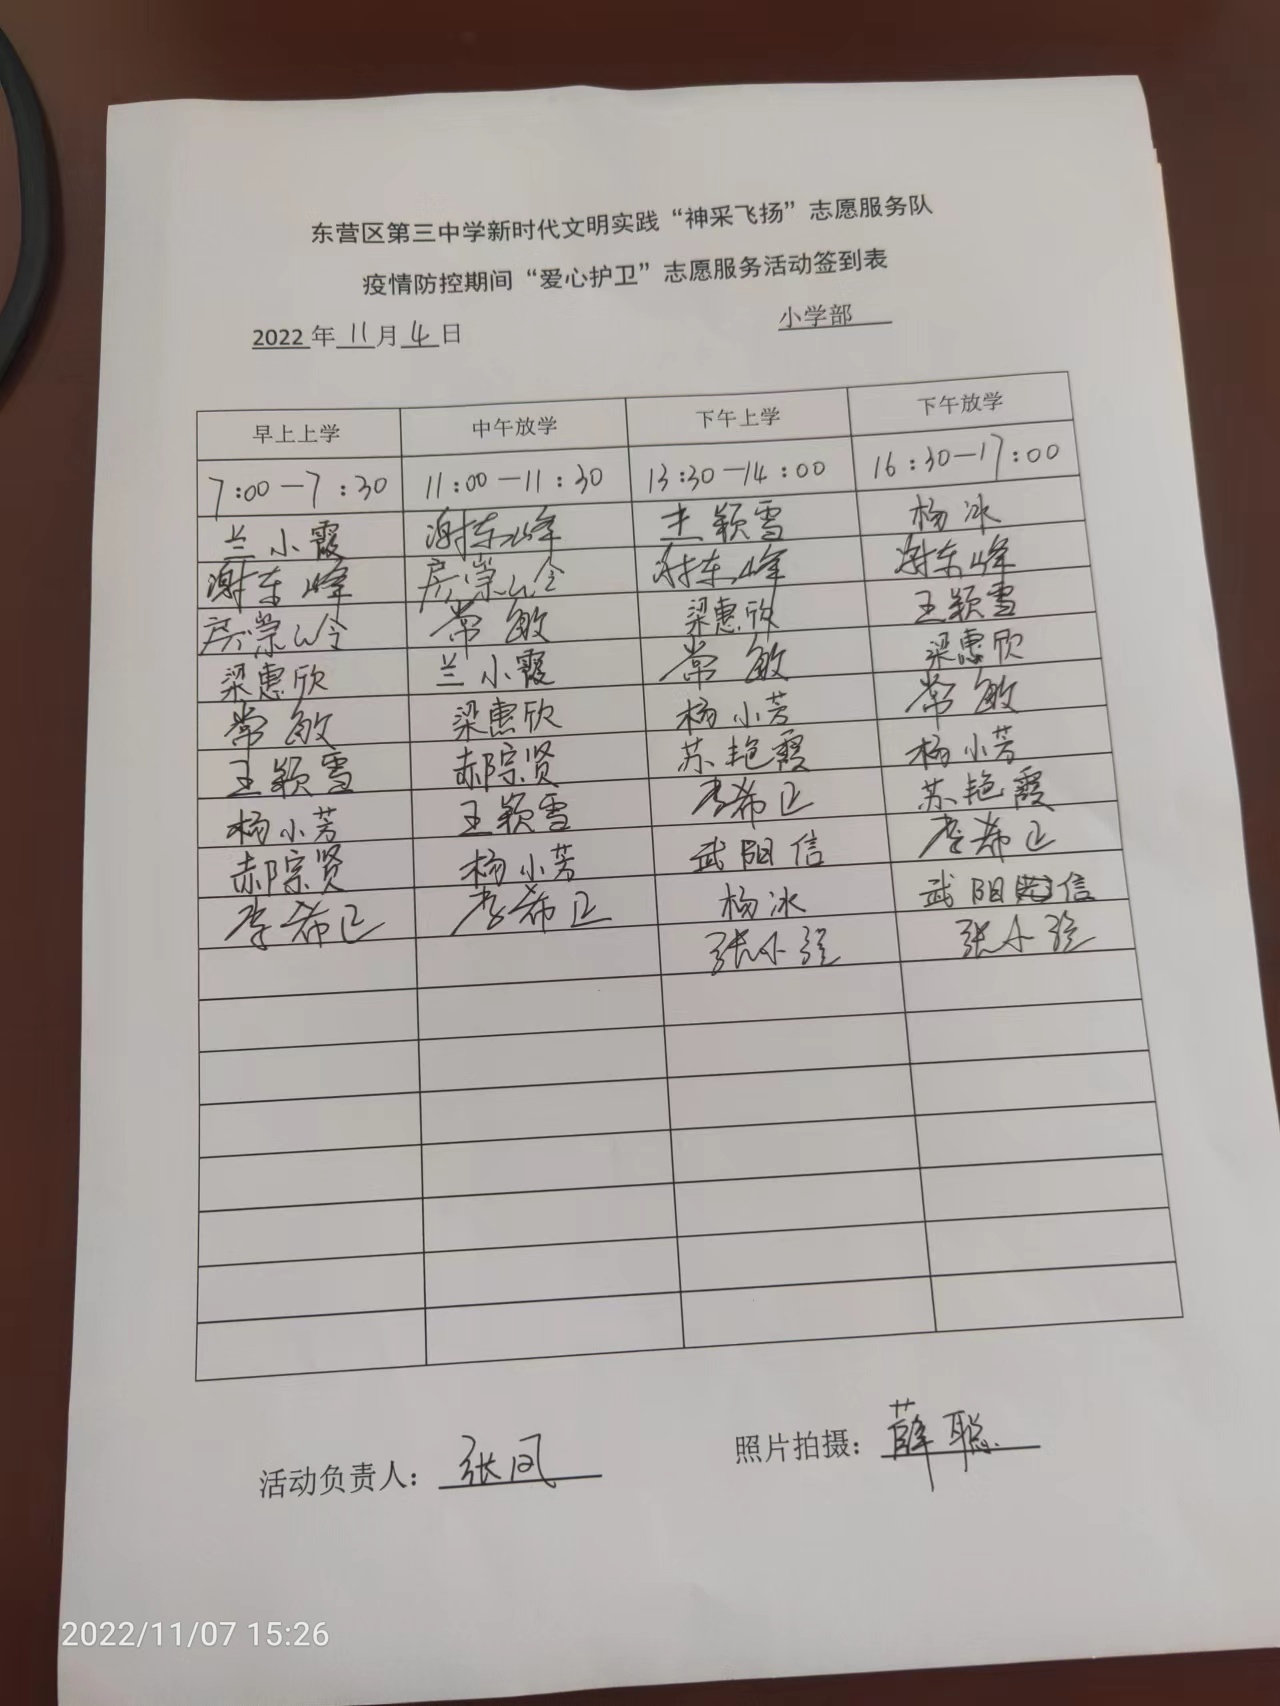 东营区第三中学新时代文明实践“神采飞扬”志愿服务队
疫情防控期间“爱心护卫”志愿服务活动签到表
2022年11月4日 小学部
早上上学 中午放学 下午上学 下午放学
7:00—7:30 11:00—11:30 13:30—14:00 16:30—17:00
兰小霞 谢东峰 王颖雪 杨冰
谢东峰 房崇岭 谢东峰 谢东峰
房崇岭 常敏 梁惠欣 王颖雪
梁惠欣 兰小霞 常敏 梁惠欣
常敏 梁惠欣 杨小芳 常敏
王颖雪 郝宗贤 苏艳霞 杨小芳
杨小芳 王颖雪 李希正 苏艳霞
郝宗贤 杨小芳 武阳信 李希正
李希正 李希正 杨冰 武阳信
张小强 张小强
活动负责人：张凤 照片拍摄：薛聪
2022/11/07 15:26